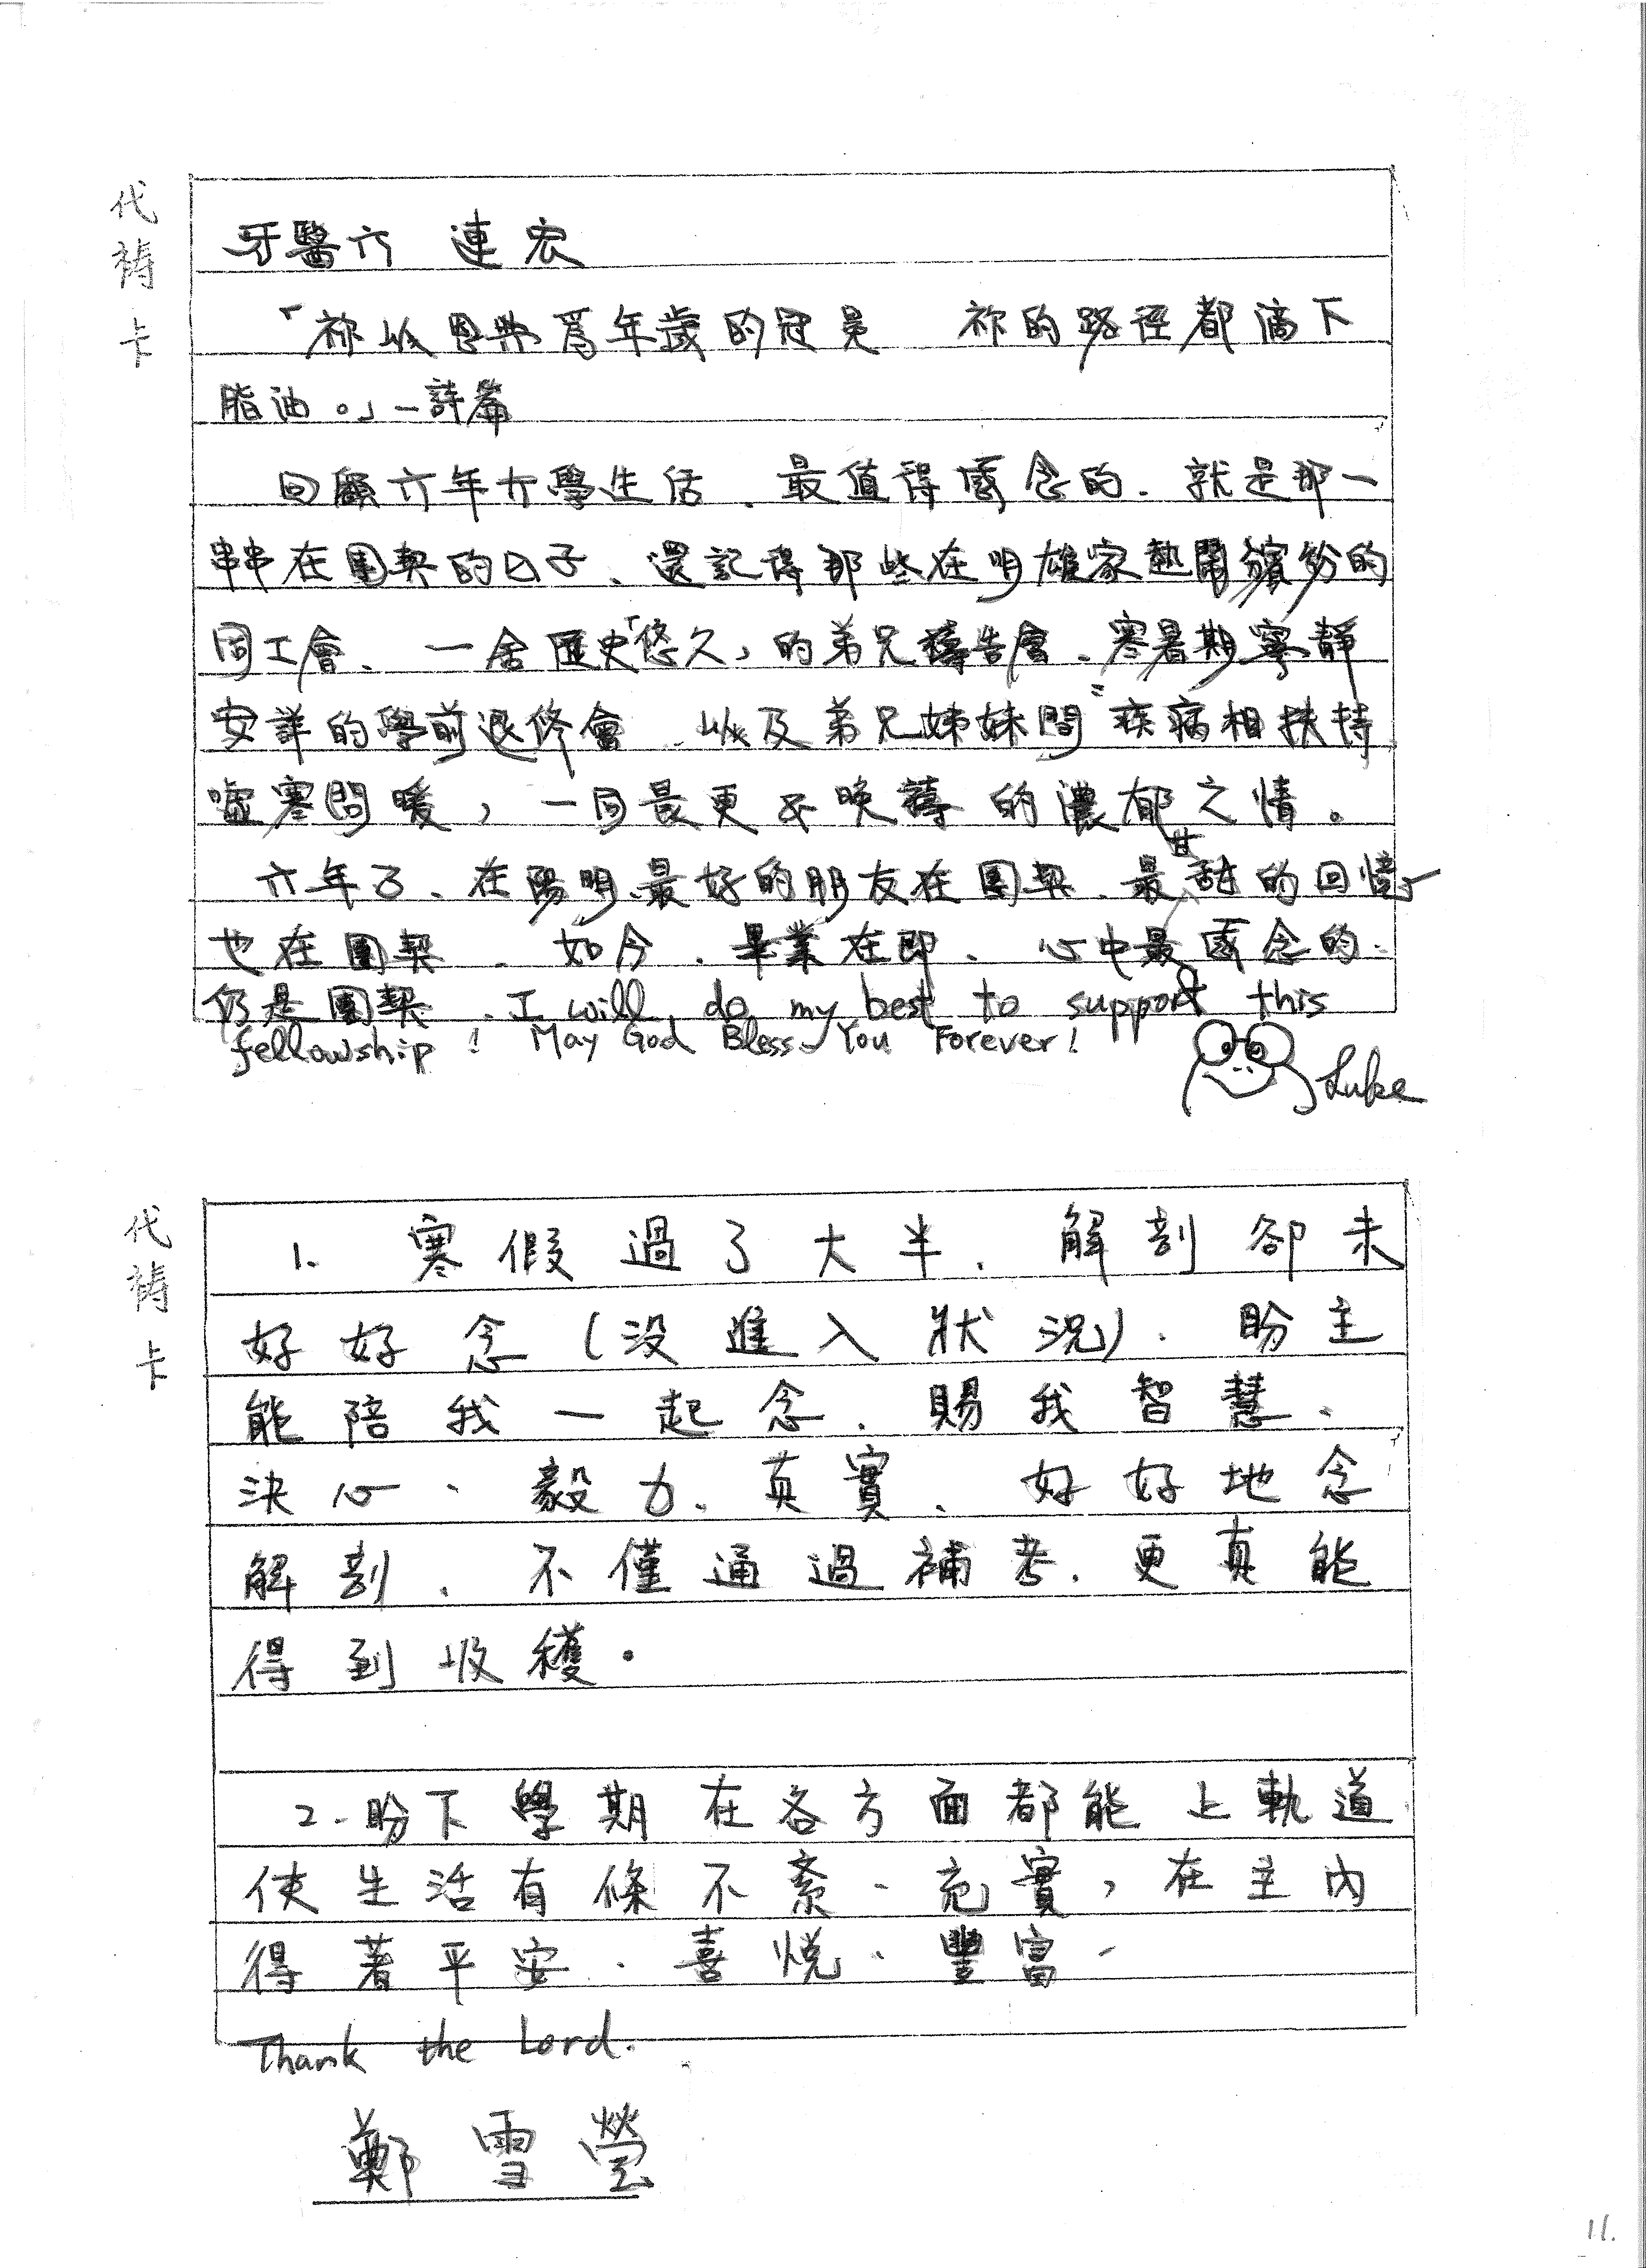 代禱卡
牙醫六 連宏
「祢以恩典為年歲的冠冕 祢的路徑都滴下
脂油。」—詩篇
回顧六年大學生活、最值得感念的、就是那一
串串在團契的日子、還記得那些在明雄家熱鬧繽紛的
同工會、一舍歷史「悠久」的弟兄禱告會、寒暑期寧靜
安詳的學前退修會、以及弟兄姊妹間"疾病相扶持
噓寒問暖,一同晨更和晚禱的濃郁之情。
六年了、在陽明最好的朋友在團契、最甘甜的回憶
也在團契、如今、畢業在即、心中最感念的
仍是團契、I will do my best to support this
fellowship! May God Bless You Forever!
Luke
代禱卡
1、寒假過了大半、解剖卻未
好好念(沒進入狀況)、盼主
能陪我一起念、賜我智慧、
決心、毅力、真實、好好地念
解剖、不僅通過補考、更真能
得到收穫。
2、盼下學期在各方面都能上軌道
使生活有條不紊、充實,在主內
得著平安、喜悅、豐富、
Thank the Lord.
鄭雪瑩
11.